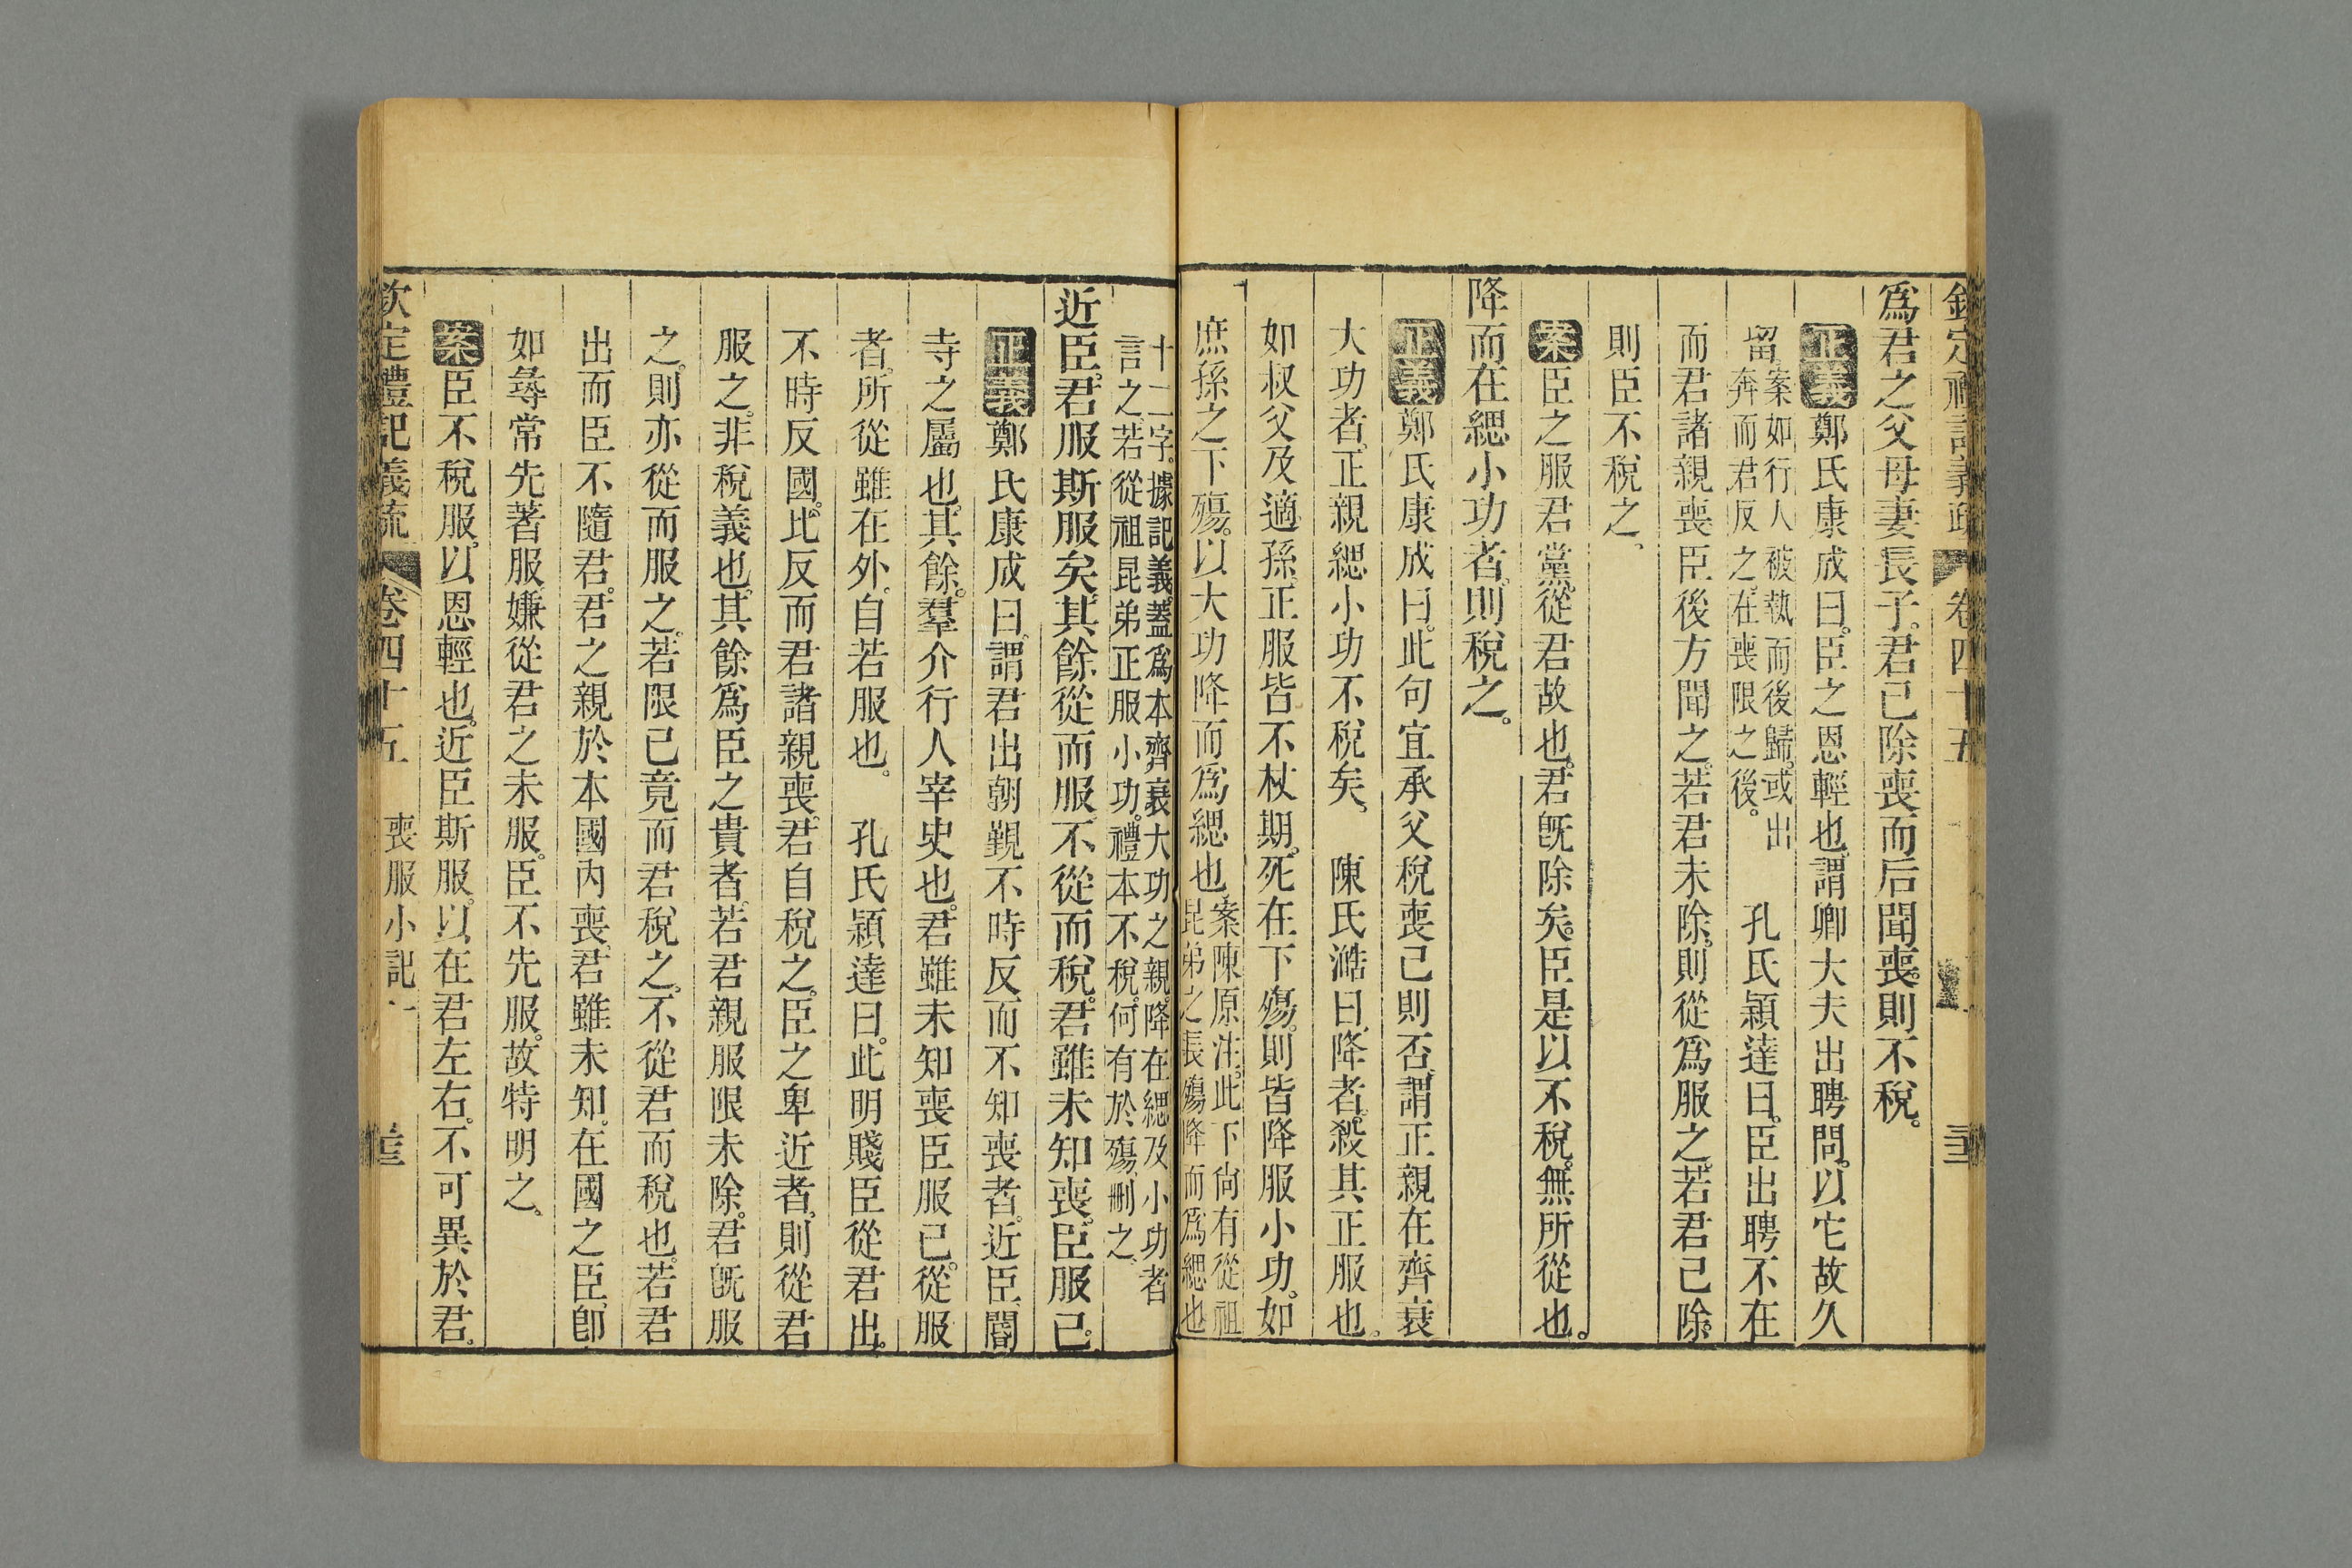 欽定禮記義疏 卷四十五
爲君之父母妻長子。君已除喪而后聞喪。則不稅。
正義鄭氏康成曰。臣之恩輕也。謂卿大夫出聘問。以它故久
留。案如行人被執而後歸。或出奔而君反之。在喪限之後。 孔氏穎達曰。臣出聘不在
而君諸親喪。臣後方聞之。若君未除。則從爲服之。若君已除。
則臣不稅之。
案臣之服君黨。從君故也。君既除矣。臣是以不稅。無所從也。
降而在緦小功者。則稅之。
正義鄭氏康成曰。此句宜承父稅喪己則否。謂正親在齊衰
大功者。正親緦小功不稅矣。 陳氏澔曰。降者。殺其正服也。
如叔父及適孫。正服皆不杖期。死在下殤。則皆降服小功。如
庶孫之下殤。以大功降而爲緦也。案陳原注。此下尙有從祖昆弟之長殤降而爲緦也
十二字。據記義。蓋爲本齊衰大功之親。降在緦及小功者言之。若從祖昆弟正服小功。禮本不稅。何有於殤。刪之。
近臣。君服斯服矣。其餘從而服。不從而稅。君雖未知喪。臣服已。
正義鄭氏康成曰。謂君出朝覲不時反而不知喪者。近臣。閽
寺之屬也。其餘。羣介行人宰史也。君雖未知喪。臣服已。從服
者。所從雖在外。自若服也。 孔氏穎達曰。此明賤臣從君出。
不時反國。比反而君諸親喪。君自稅之。臣之卑近者。則從君
服之。非稅義也。其餘爲臣之貴者。若君親服限未除。君旣服
之。則亦從而服之。若限已竟而君稅之。不從君而稅也。若君
出而臣不隨君。君之親於本國內喪。君雖未知。在國之臣。卽
如尋常先著服。嫌從君之未服。臣不先服。故特明之。
案臣不稅服。以恩輕也。近臣斯服。以在君左右。不可異於君。
欽定禮記義疏 卷四十五 喪服小記